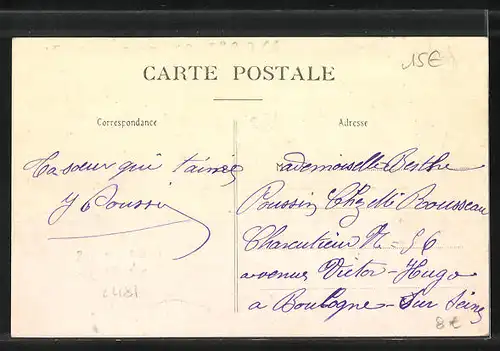 15€
CARTE POSTALE
Correspondance
Adresse
Ta sœur qui t'aime
Y Poussin
Mademoiselle Berthe
Poussin Chez Mr Rousseau
Charcutier N - 56
avenue Victor - Hugo
a Boulogne - Sur Seine
8€